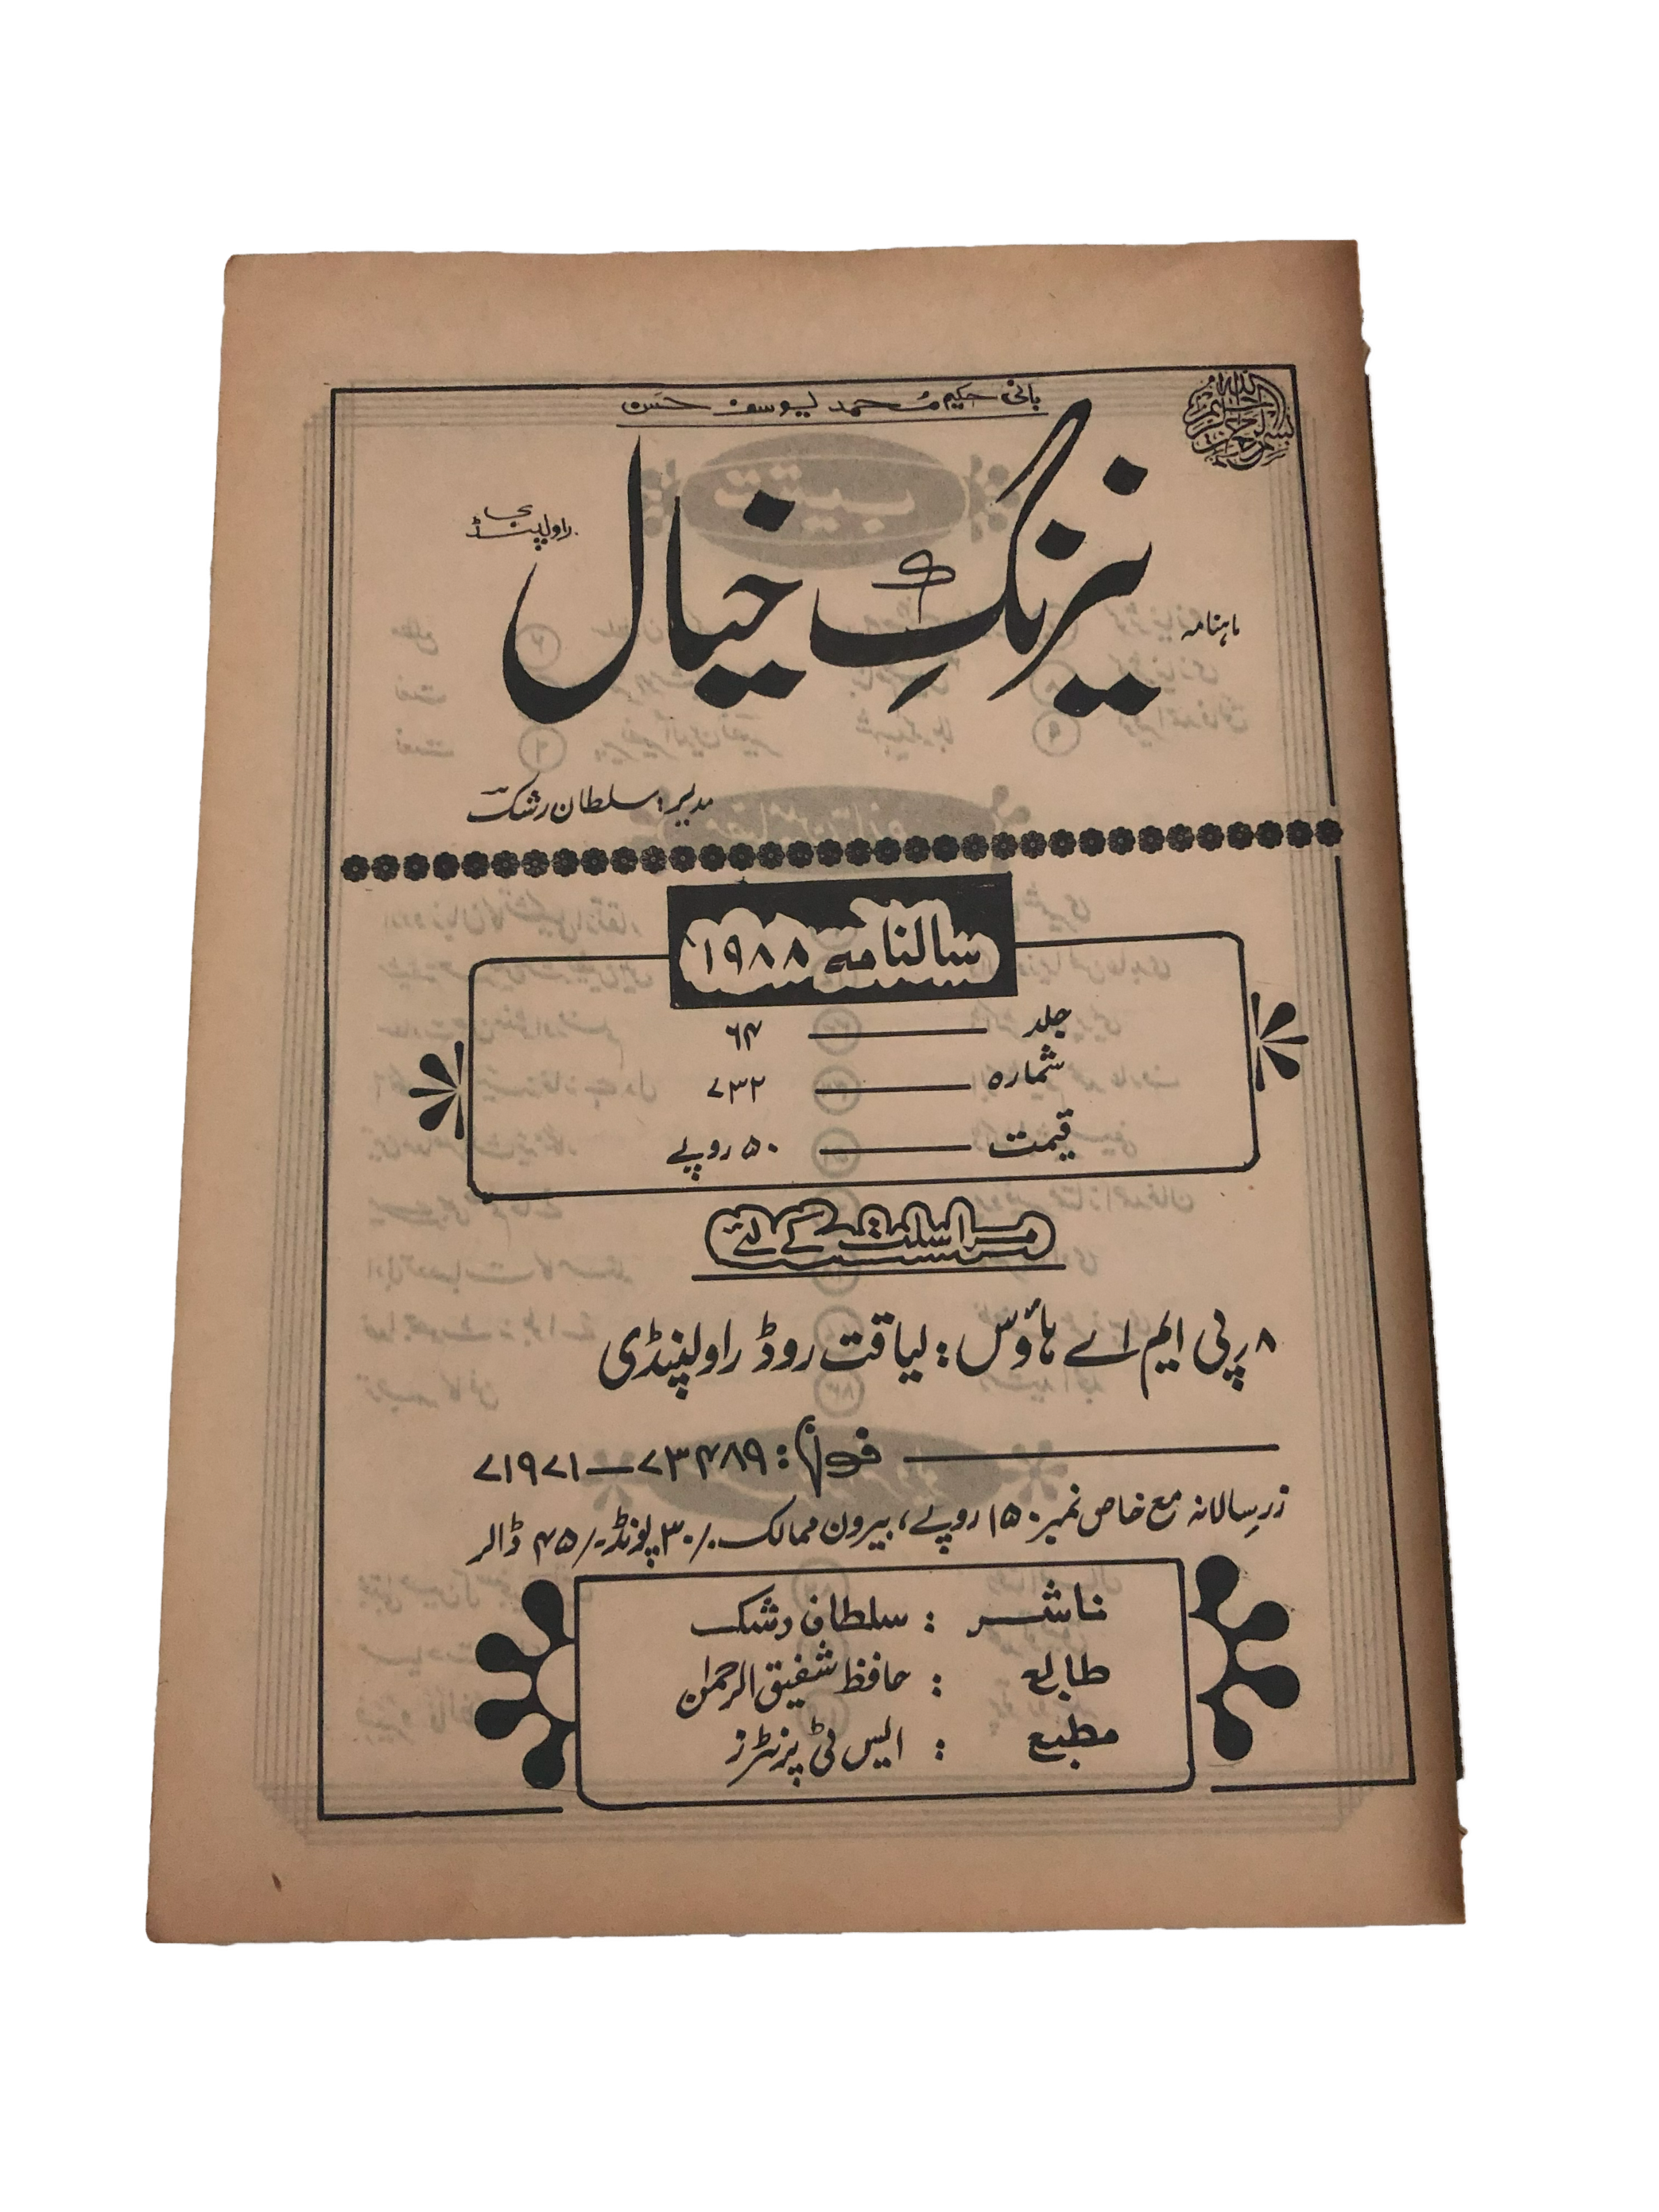 بسم اللہ الرحمن الرحیم
بانی، حکیم محمد یوسف حسن
ماہنامہ
نیرنگِ خیال
راولپنڈی
مدیر: سلطان رشک
سالنامہ ۱۹۸۸
جلد ۶۴
شمارہ ۷۳۲
قیمت ۵۰ روپے
مراسلت کے لئے
۸ ر پی ایم اے ہاؤس: لیاقت روڈ راولپنڈی
فون: ۷۳۴۸۹ — ۷۱۹۷۱
زرِ سالانہ مع خاص نمبر ۱۵۰ روپے، بیرون ممالک ۳۰/- پونڈ -/۴۵ ڈالر
ناشر : سلطان رشک
طابع : حافظ شفیق الرحمٰن
مطبع : ایس ٹی پرنٹرز